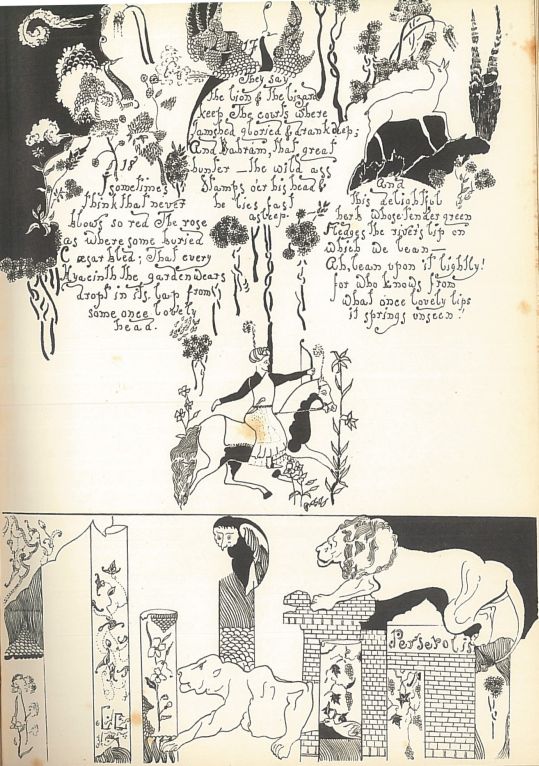 They say
the lion & the lizard
keep The courts where
Jamshed gloried & drank deep;
And Bahram, that great
hunter — the wild ass
Stamps o'er his head &
he lies fast
asleep.
18
I sometimes
think that never
blows so red The rose
as where some buried
Cæsar bled; That every
Hyacinth the garden wears
dropt in its lap from
some once lovely
head.
And
this delightful
herb whose tender green
fledges the river's lip on
which we lean —
Ah, lean upon it lightly!
for who knows from
what once lovely lips
it springs unseen!
Persepolis